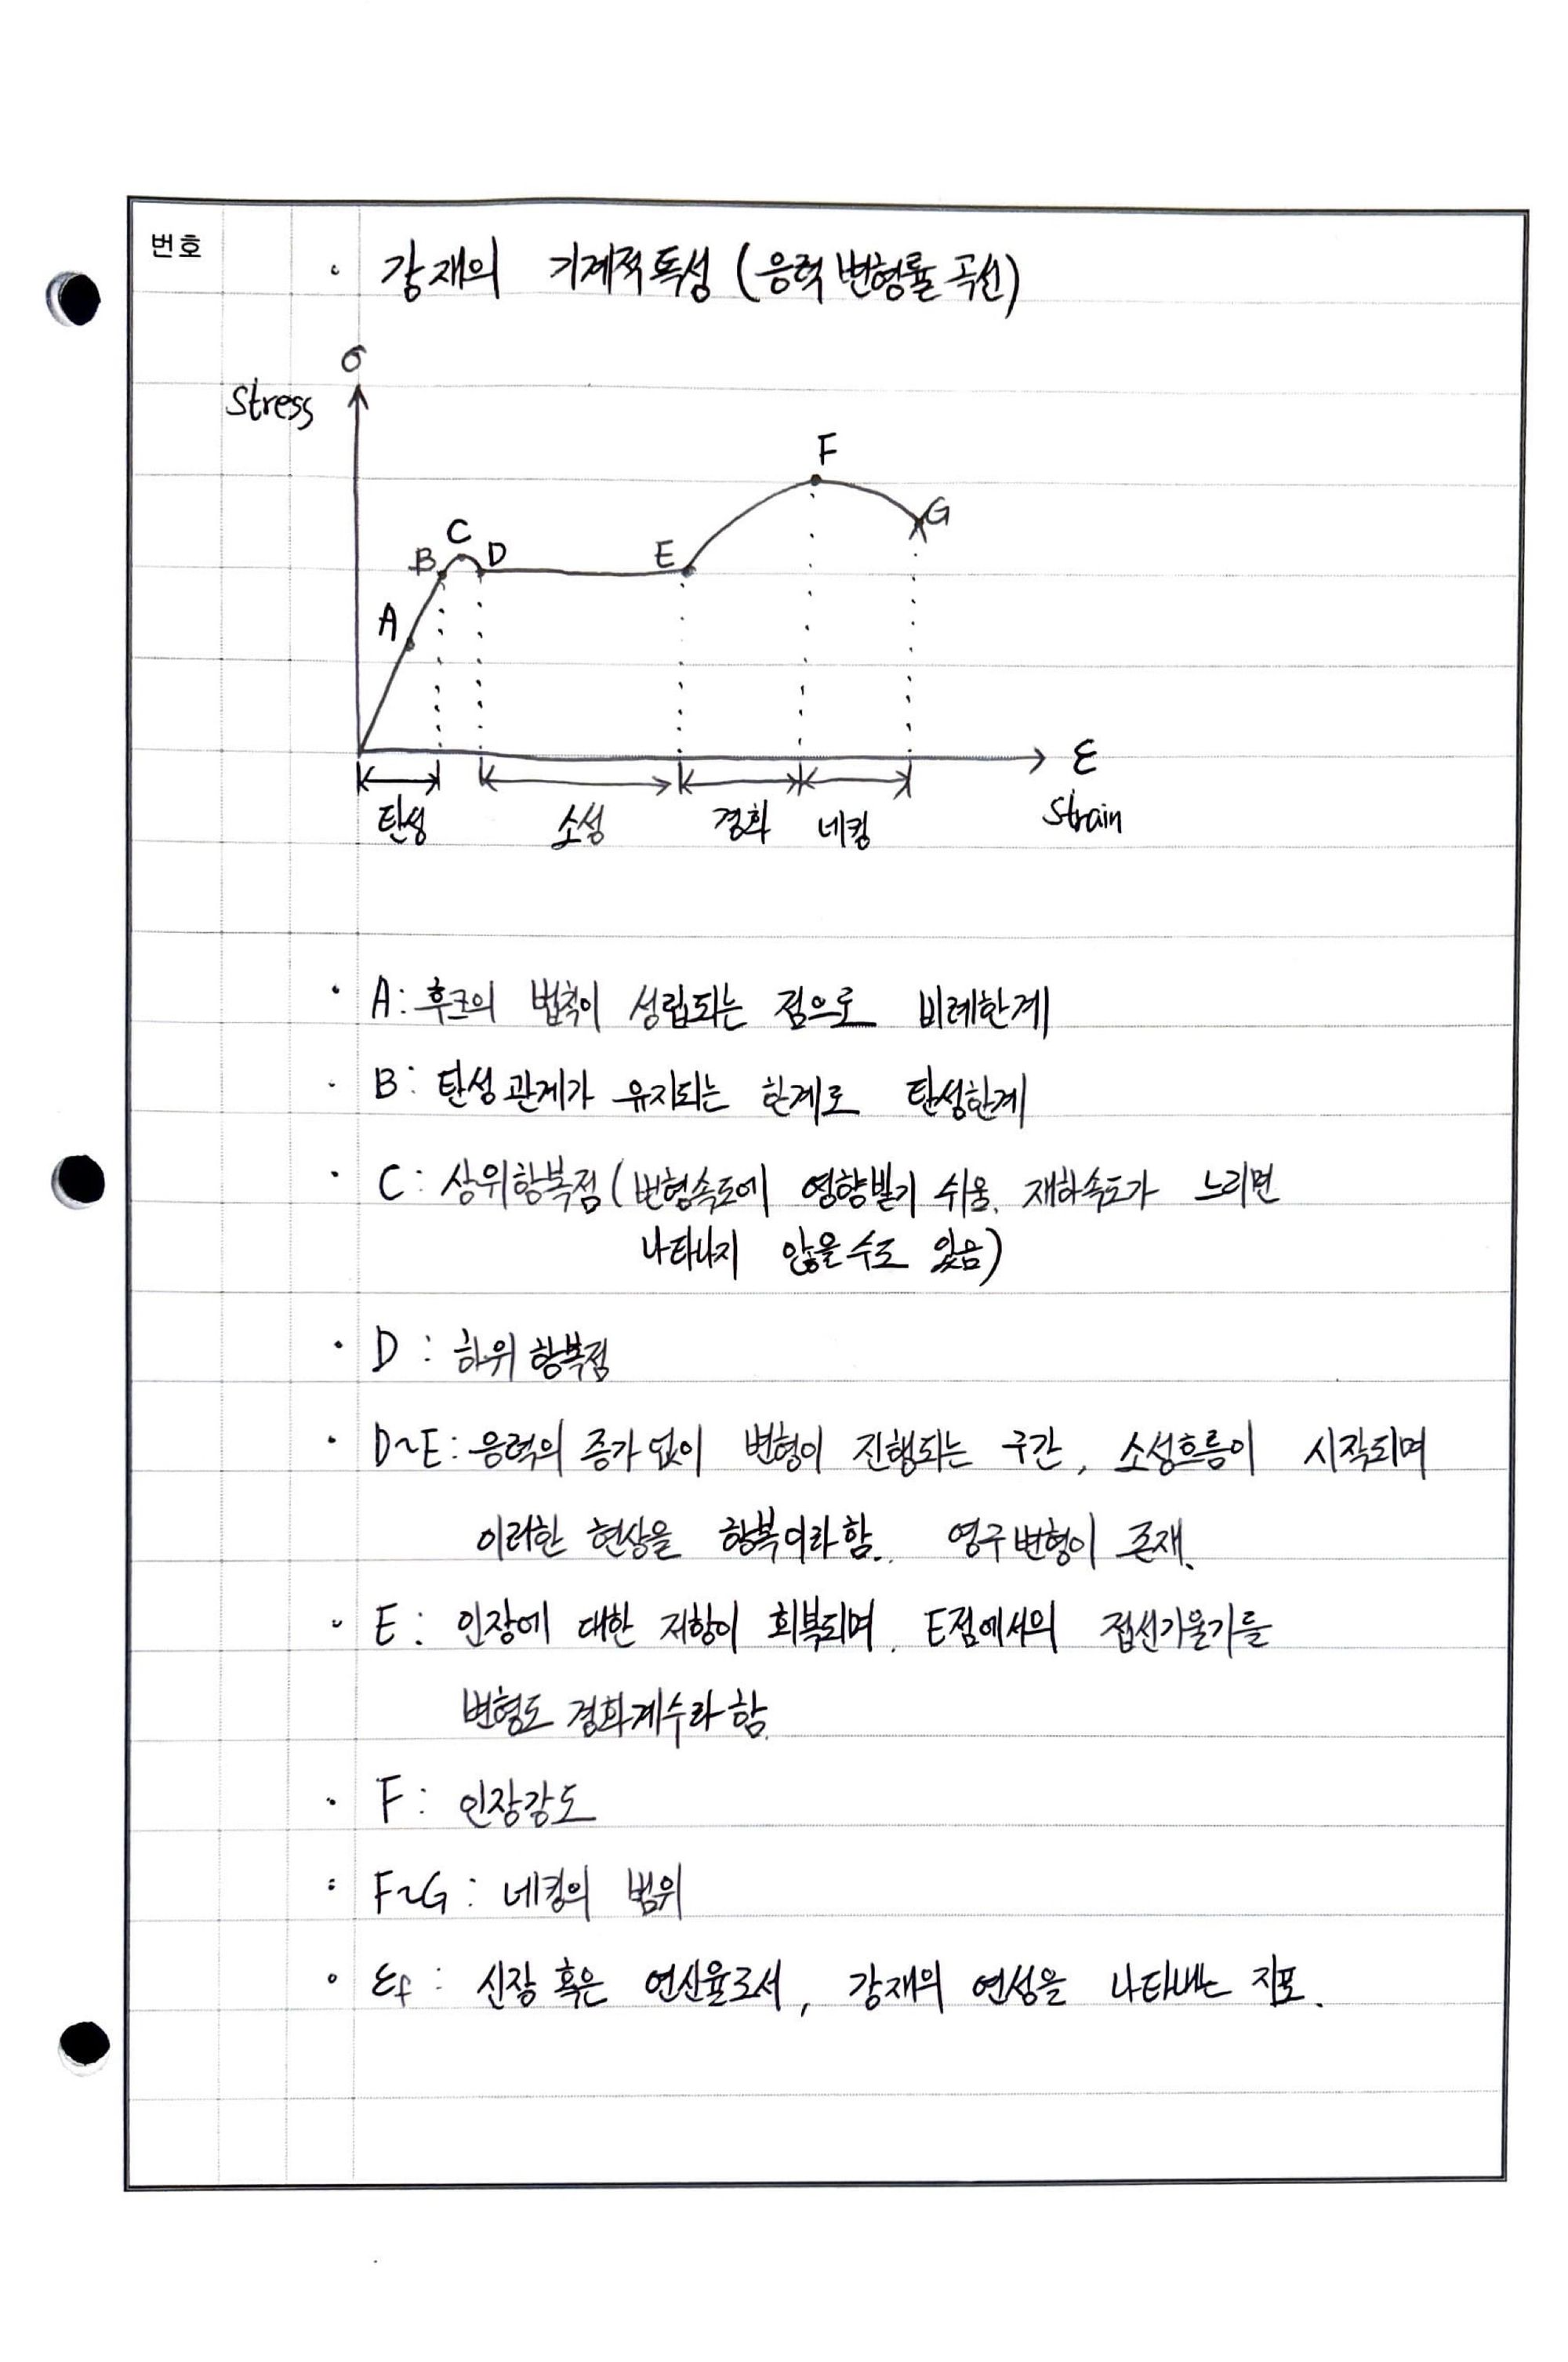 번호
· 강재의 기계적특성 (응력 변형률 곡선)
σ
Stress
F
G
C
B
D
E
A
ε
탄성 소성 경화 네킹
Strain
· A: 후크의 법칙이 성립되는 점으로 비례한계
· B: 탄성관계가 유지되는 한계로 탄성한계
· C: 상위항복점 (변형속도에 영향받기 쉬움. 재하속도가 느리면
나타나지 않을수도 있음)
· D : 하위 항복점
· D~E: 응력의 증가 없이 변형이 진행되는 구간, 소성흐름이 시작되며
이러한 현상을 항복이라함. 영구변형이 존재.
· E: 인장에 대한 저항이 회복되며, E점에서의 접선기울기를
변형도 경화계수라 함.
· F: 인장강도
: F~G : 네킹의 범위
· εf : 신장 혹은 연신율로서, 강재의 연성을 나타내는 지표.